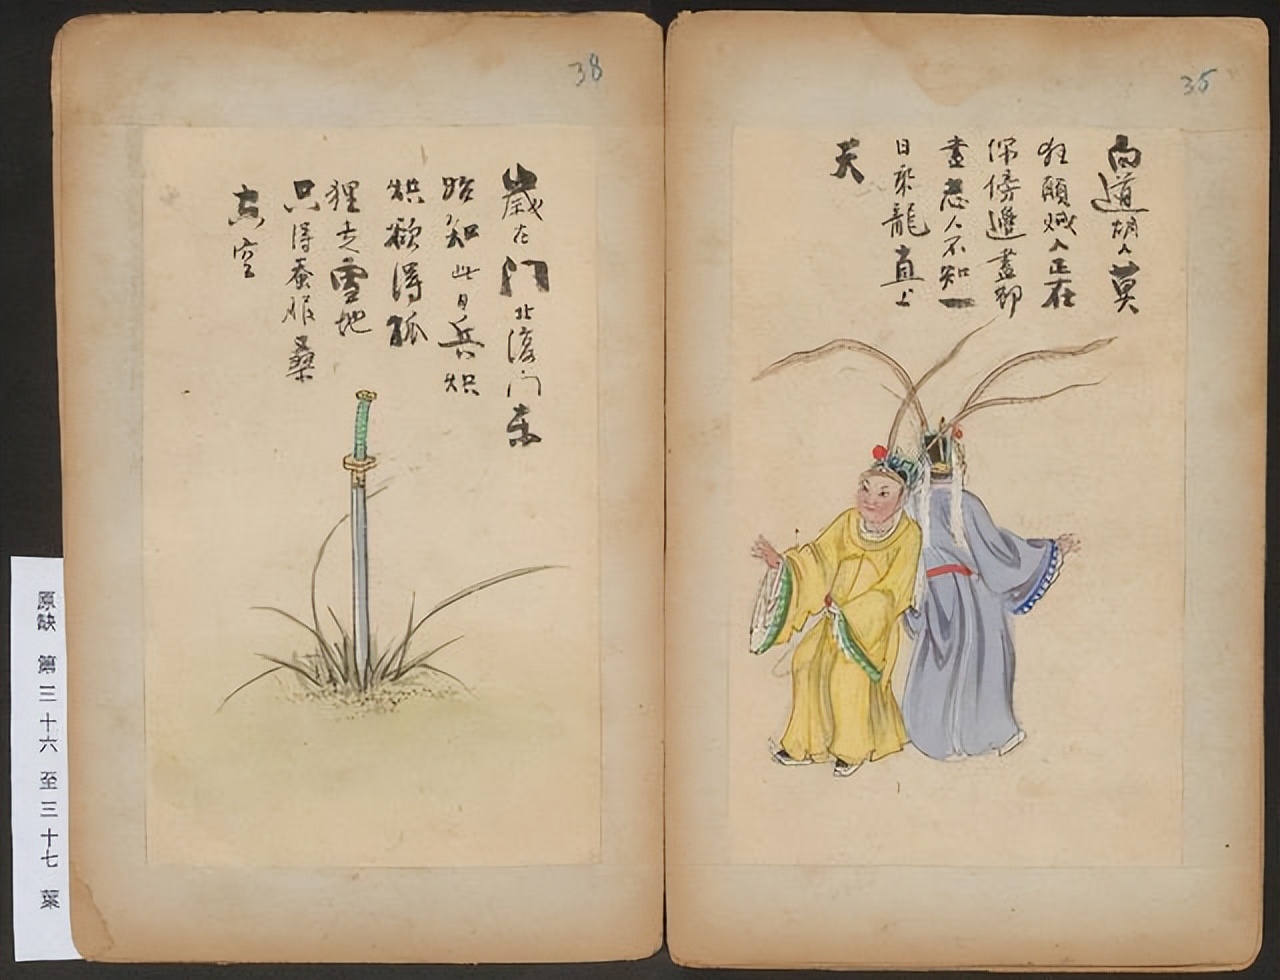 35
向道胡人莫
狂願賊人正在
你傍邊盡却
盡忠人不知一
日乘龍直上
天
38
歲在门北復门东
始知此日兵炽
炽欲得狐
狸走雪地
只得蚕服桑
空
原缺 第三十六至三十七葉